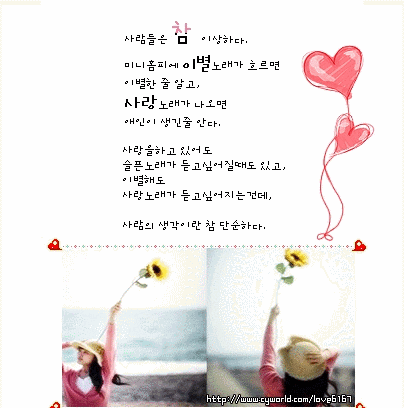 사람들은 참 이상하다.
미니홈피에 이별노래가 흐르면
이별한 줄 알고,
사랑노래가 나오면
애인이 생긴줄 안다.
사랑을하고 있어도
슬픈노래가 듣고싶어질때도 있고,
이별해도
사랑노래가 듣고싶어지는건데,
사람의 생각이란 참 단순하다.
http://www.cyworld.com/love6167